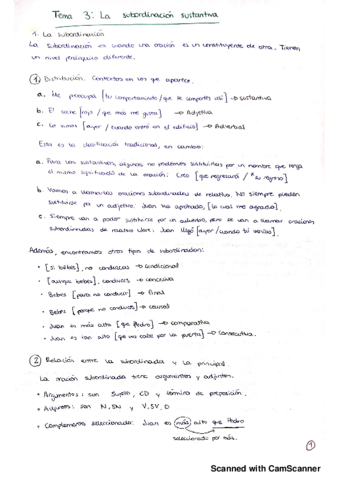 Tema 3: La subordinación sustantiva
1. La subordinación
La subordinación es cuando una oración es un constituyente de otra. Tienen
un nivel jerárquico diferente.
① Distribución. Contextos en los que aparecen.
a. Me preocupa [tu comportamiento/que se comporten así] → sustantiva
b. El coche [rojo / que más me gusta] → Adjetiva
c. Lo vimos [ayer / cuando entró en el edificio] → Adverbial
Esta es la clasificación tradicional, en cambio:
a. Para las sustantivas, algunas no podemos sustituirlas por un nombre que tenga
el mismo significado de la oración: Creo [que regresará / *su regreso]
b. Vamos a llamarlas oraciones subordinadas de relativo. No siempre pueden
sustituirse por un adjetivo. Juan ha aprobado, [lo cual me agrada].
c. Siempre van a poder sustituirse por un adverbio, pero se van a llamar oraciones
subordinadas de relativo libre. Juan llegó [ayer/cuando tú].
Además, encontramos otros tipos de subordinación:
• [Si bebes], no conduzcas → condicional
• [aunque bebas], conduces → concesiva
• Bebes [para no conducir] → final
• Bebes [porque no conduces] → causal
• Juan es más alto [que Pedro] → comparativa
• Juan es tan alto [que no cabe por la puerta] → consecutiva.
② Relación entre la subordinada y la principal
La oración subordinada tiene argumentos y adjuntos.
• Argumentos: son Sujeto, CD y término de preposición.
• Adjuntos: son N, SN y V, SV, O
• Complementos seleccionados: Juan es más alto que Pedro
seleccionado por más.
①
Scanned with CamScanner